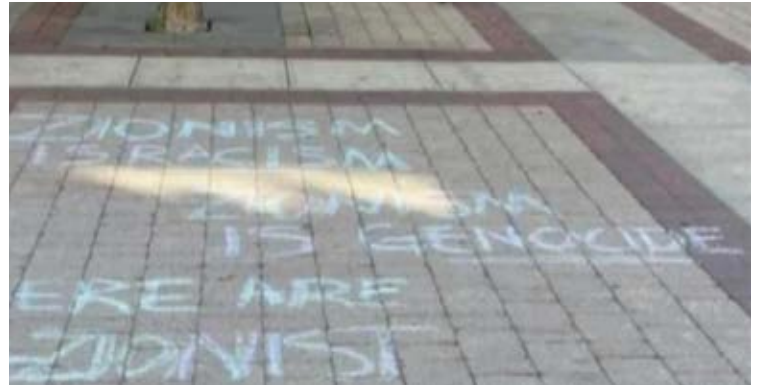 ZIONISM
IS RACISM
ZIONISM
IS GENOCIDE
ERE ARE
ZIONIST